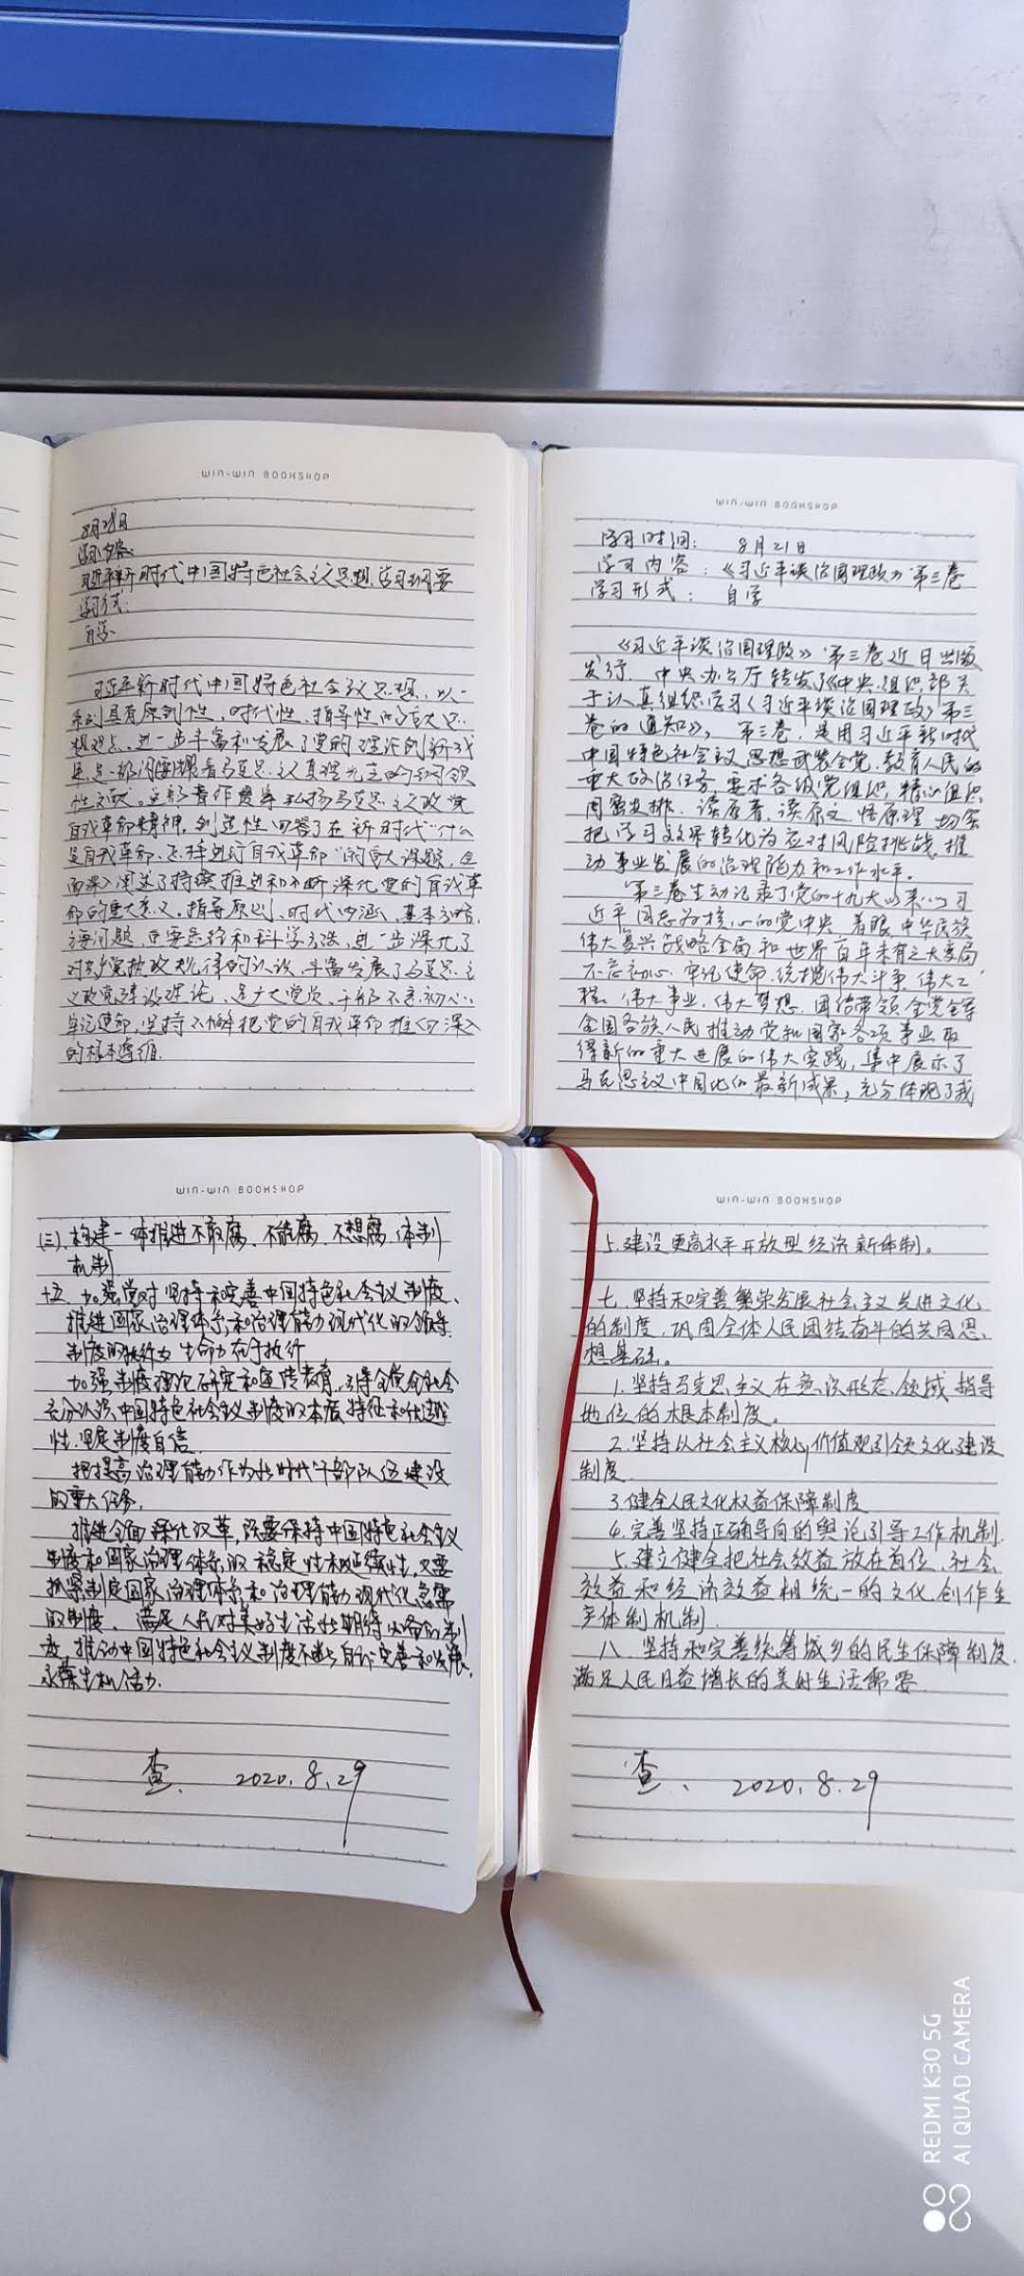 WIN-WIN BOOKSHOP
8月28日
学习内容:
习近平新时代中国特色社会主义思想学习纲要
学习方式:
自学
习近平新时代中国特色社会主义思想,以一
系列具有原创性、时代性、指导性的重大思
想观点,进一步丰富和发展了党的理论创新成
果,是一部闪耀着马克思主义真理光芒的纲领
性文献。这部著作贯穿弘扬马克思主义政党
自我革命精神,创造性回答了在新时代“什么
是自我革命、怎样进行自我革命”的重大课题,全
面深入阐述了持续推进和不断深化党的自我革
命的重大意义、指导原则、时代内涵、基本方略、
主要问题、重要路径和科学方法,进一步深化了
对共产党执政规律的认识,丰富发展了马克思主
义政党建设理论,是广大党员、干部不忘初心、
牢记使命,坚持不懈把党的自我革命推向深入
的根本遵循.
WIN-WIN BOOKSHOP
学习时间: 8月21日
学习内容:《习近平谈治国理政》第三卷
学习形式: 自学
《习近平谈治国理政》第三卷近日出版
发行,中央办公厅转发了《中央组织部关
于认真组织学习《习近平谈治国理政》第三
卷的通知》,第三卷,是用习近平新时代
中国特色社会主义思想武装全党、教育人民的
重大政治任务,要求各级党组织,精心组织,
周密安排,读原著、读原文、悟原理,切实
把学习效果转化为应对风险挑战、推
动事业发展的治理能力和工作水平。
第三卷生动记录了党的十九大以来以习
近平同志为核心的党中央,着眼中华民族
伟大复兴战略全局和世界百年未有之大变局
不忘初心、牢记使命,统揽伟大斗争、伟大工
程、伟大事业、伟大梦想,团结带领全党全军
全国各族人民推动党和国家各项事业取
得新的重大进展的伟大实践,集中展示了
马克思主义中国化的最新成果,充分体现了我
WIN-WIN BOOKSHOP
(三)、构建一体推进不敢腐、不能腐、不想腐、体制
机制
十五、加强党对坚持和完善中国特色社会主义制度、
推进国家治理体系和治理能力现代化的领导.
制度的执行力 生命力在于执行
加强制度理论研究和宣传教育,引导全党全社会
充分认识中国特色社会主义制度的本质特征和优越
性,坚定制度自信.
把提高治理能力作为新时代干部队伍建设
的重大任务.
推进全面深化改革,既要保持中国特色社会主义
制度和国家治理体系的稳定性和延续性,又要
抓紧制定国家治理体系和治理能力现代化急需
的制度、满足人民对美好生活新期待必备的制
度,推动中国特色社会主义制度不断自我完善和发展、
永葆生机活力.
查. 2020.8.29
WIN-WIN BOOKSHOP
5.建设更高水平开放型经济新体制。
七、坚持和完善繁荣发展社会主义先进文化
的制度,巩固全体人民团结奋斗的共同思
想基础。
1.坚持马克思主义在意识形态领域指导
地位的根本制度。
2.坚持以社会主义核心价值观引领文化建设
制度.
3.健全人民文化权益保障制度
4.完善坚持正确导向的舆论引导工作机制.
5.建立健全把社会效益放在首位、社会
效益和经济效益相统一的文化创作生
产体制机制.
八、坚持和完善统筹城乡的民生保障制度,
满足人民日益增长的美好生活需要
查. 2020.8.29
REDMI K30 5G
AI QUAD CAMERA